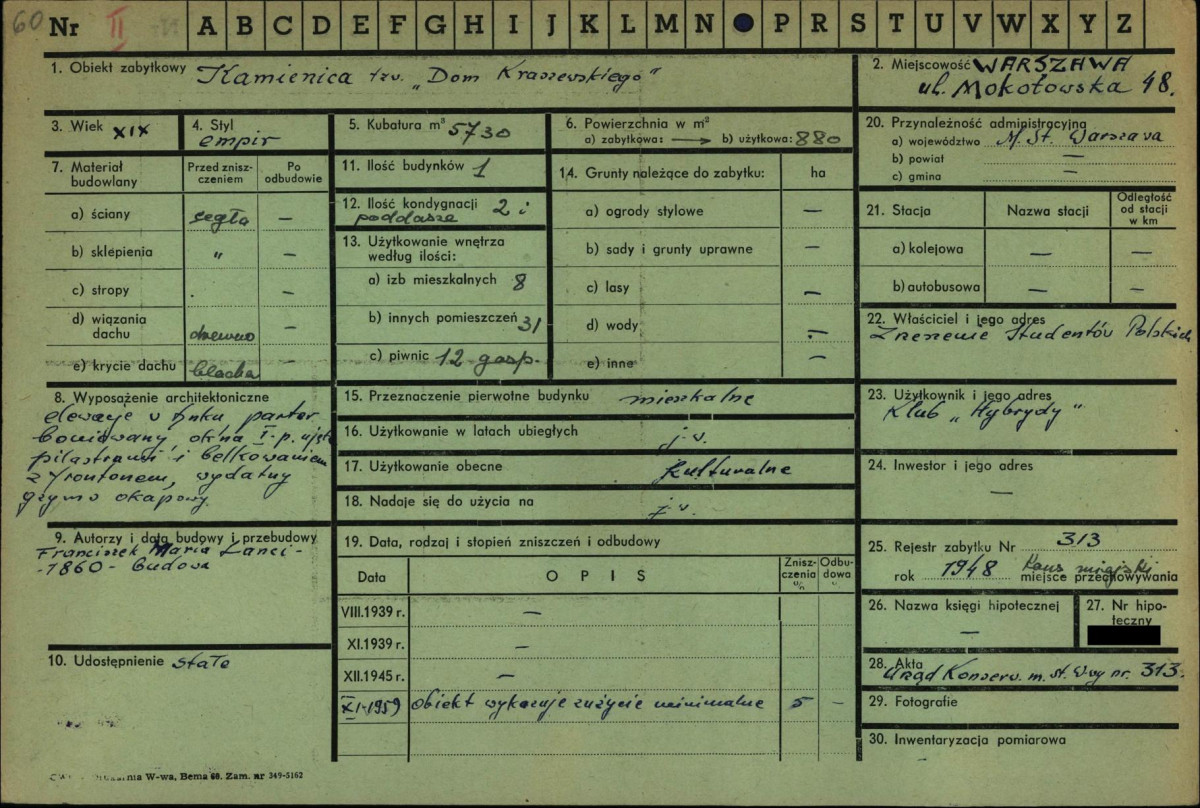 60 Nr II A B C D E F G H I J K L M N P R S T U V W X Y Z
1. Obiekt zabytkowy Kamienica tzw. „Dom Kraszewskiego"
2. Miejscowość WARSZAWA
ul. Mokotowska 48.
3. Wiek XIX
4. Styl
empir
5. Kubatura m³ 5730
6. Powierzchnia w m²
a) zabytkowa: → b) użytkowa: 880
20. Przynależność administracyjna
a) województwo M. St. Warszawa
b) powiat —
c) gmina —
7. Materiał
budowlany
Przed znisz-
czeniem
Po
odbudowie
a) ściany cegła —
b) sklepienia „ —
c) stropy . —
d) wiązania
dachu drzewno —
e) krycie dachu blacha —
11. Ilość budynków 1
12. Ilość kondygnacji 2 i
poddasze
13. Użytkowanie wnętrza
według ilości:
a) izb mieszkalnych 8
b) innych pomieszczeń 31
c) piwnic 12 gosp.
14. Grunty należące do zabytku: ha
a) ogrody stylowe —
b) sady i grunty uprawne —
c) lasy —
d) wody —
e) inne —
21. Stacja Nazwa stacji
Odległość
od stacji
w km
a) kolejowa — —
b) autobusowa — —
22. Właściciel i jego adres
Zrzeszenie Studentów Polskich
8. Wyposażenie architektoniczne
elewacje w tynku parter
boniowany, okna I-p. ujęte
pilastrami i belkowaniem
z frontonem, wydatny
gzyms okapowy.
15. Przeznaczenie pierwotne budynku mieszkalne
16. Użytkowanie w latach ubiegłych j.w.
17. Użytkowanie obecne kulturalne
18. Nadaje się do użycia na j.w.
23. Użytkownik i jego adres
Klub „Hybrydy"
24. Inwestor i jego adres
—
9. Autorzy i data budowy i przebudowy
Franciszek Maria Lanci -
-1860- budowa
19. Data, rodzaj i stopień zniszczeń i odbudowy
Data OPIS
Znisz-
czenia
%
Odbu-
dowa
VIII.1939 r. —
XI.1939 r. —
XII.1945 r. —
XI-1959 obiekt wykazuje zużycie minimalne 5 —
25. Rejestr zabytku Nr 313
rok 1948 Kons. miejski
miejsce przechowywania
26. Nazwa księgi hipotecznej
—
27. Nr hipo-
teczny
10. Udostępnienie stałe
28. Akta
Urząd Konserw. m. st. W-wy nr. 313.
29. Fotografie
30. Inwentaryzacja pomiarowa
W-wa, Bema 60. Zam. nr 349-5162